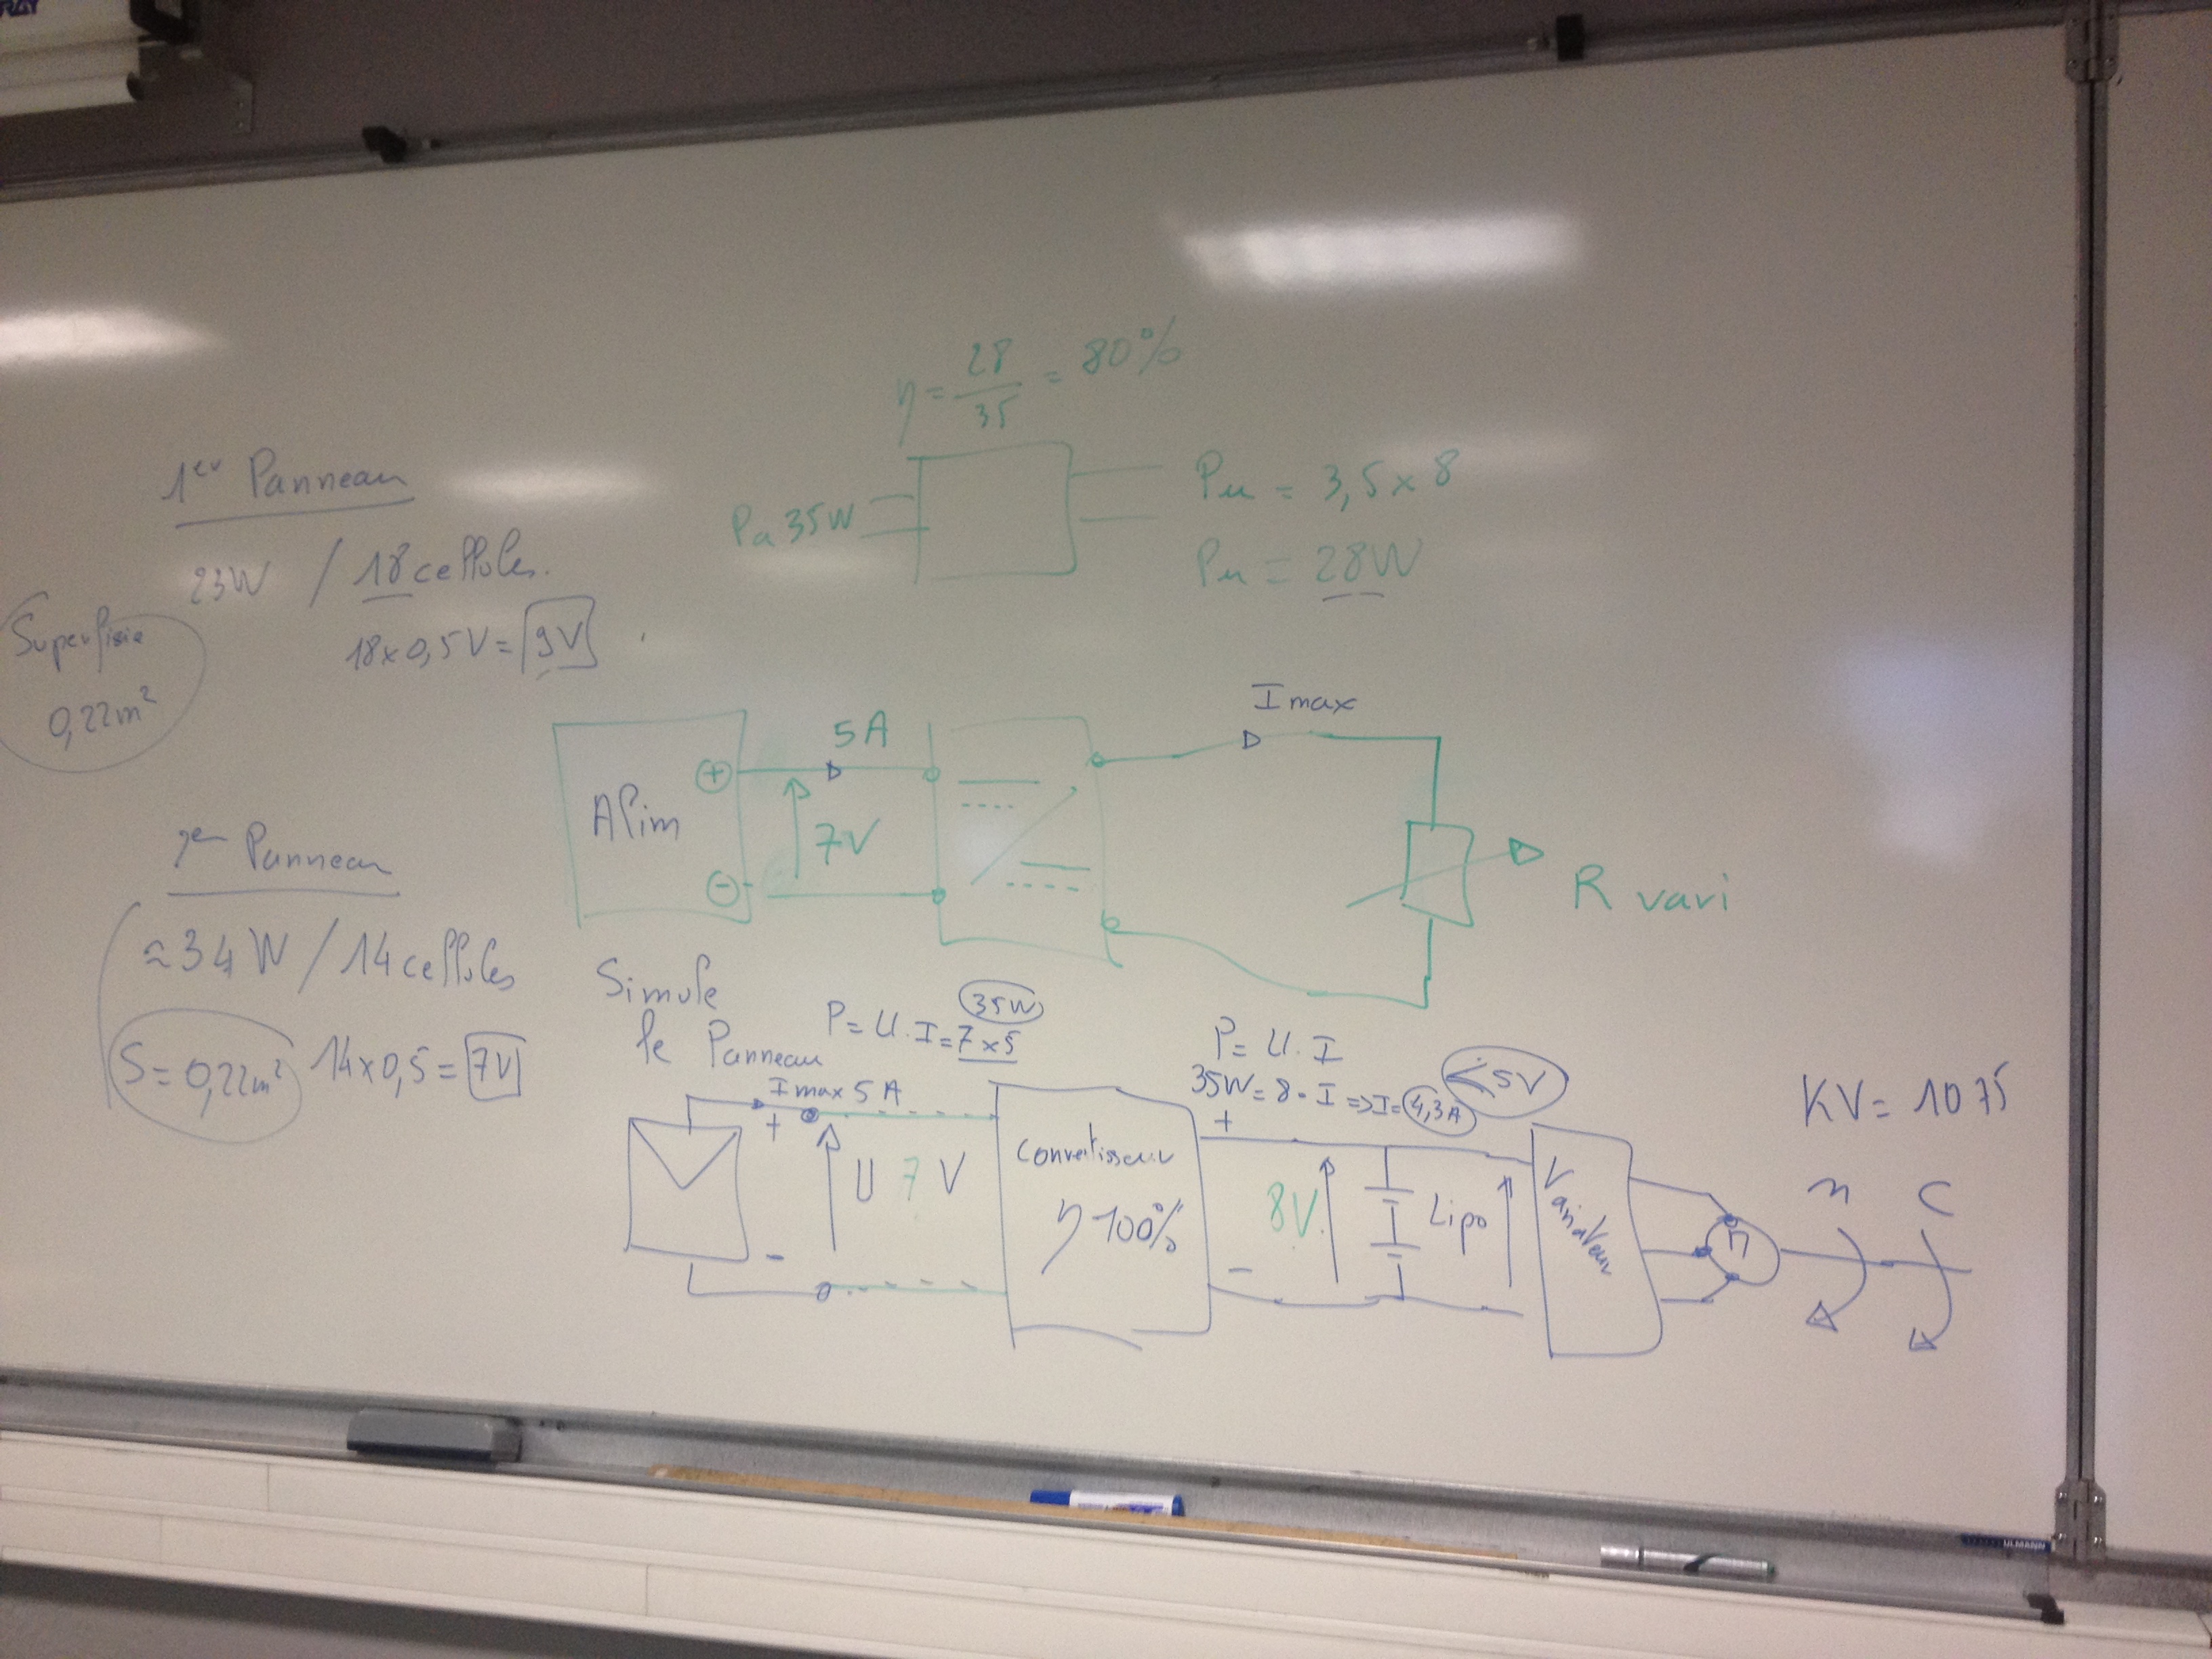 η = 28/35 = 80%
Pa 35W
Pu = 3,5 x 8
Pu = 28W
1er Panneau
23W / 18 cellules.
18 x 0,5V = 9V
Superfisie
0,22m²
2em Panneau
≈ 34 W / 14 cellules
S = 0,22m²
14 x 0,5 = 7V
Alim
+
-
5A
7V
I max
R vari
Simule
le Panneau
P = U. I = 7 x 5
35W
I max 5 A
+
-
U 7 V
Convertisseur
η 100%
P = U. I
35W = 8 . I => I = 4,3A
< 5V
+
-
8V
Lipo
Variateur
M
KV = 1075
n
C
ULMANN